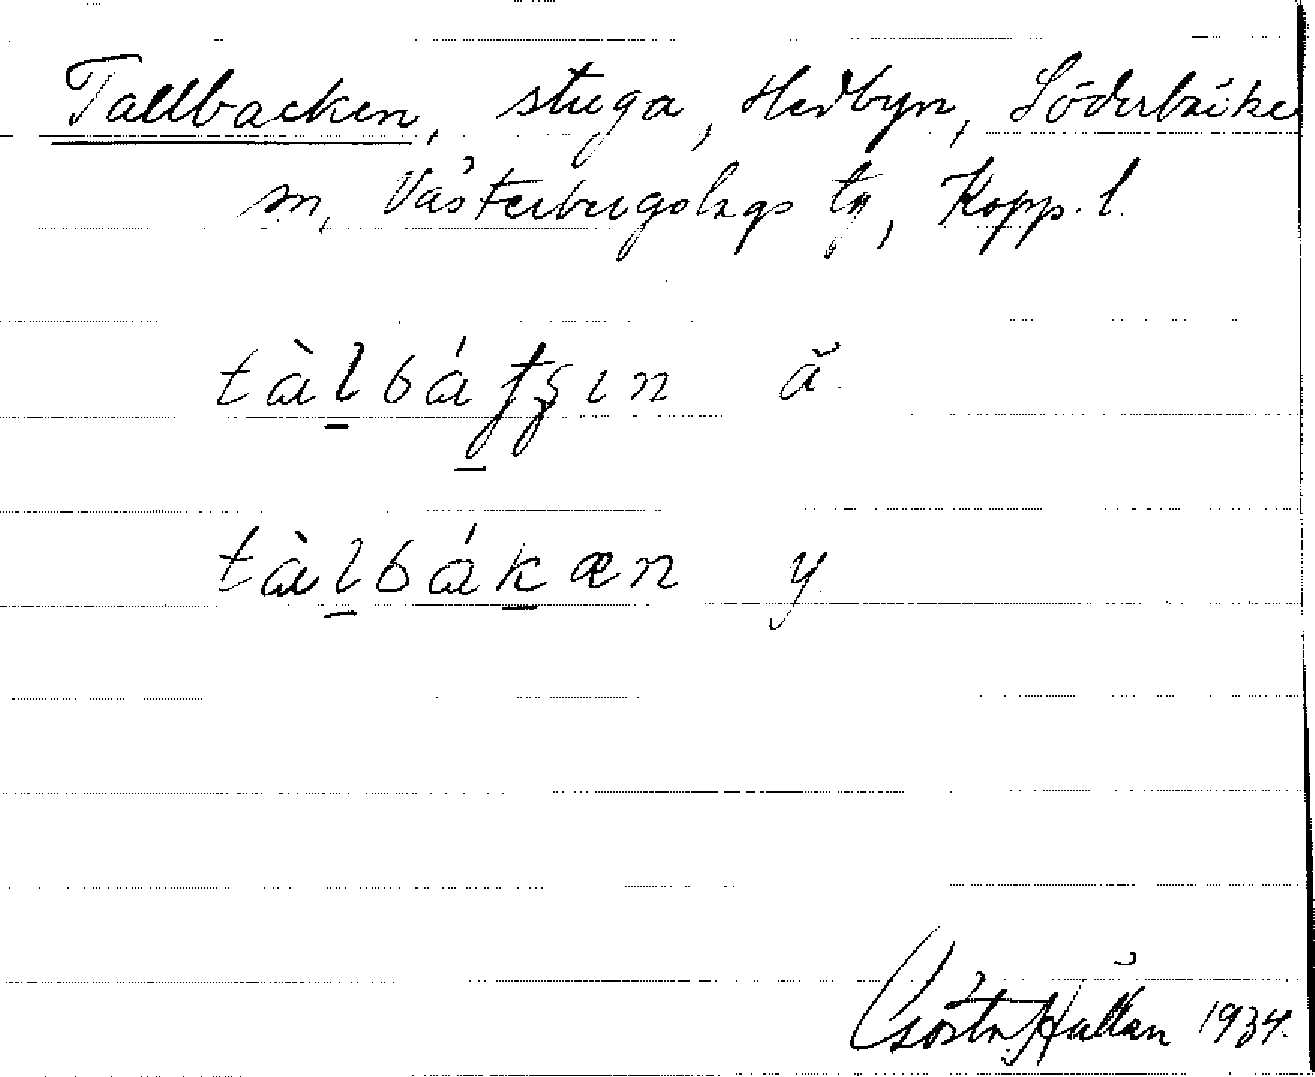 Tallbacken, stuga, Hedbyn, Söderbärke
sn, Västerbergslags tg, Kopp. l.
tàl̠bát̠ʂın ä.
tàl̠bák̠æn y
Gösta Hallan 1934.